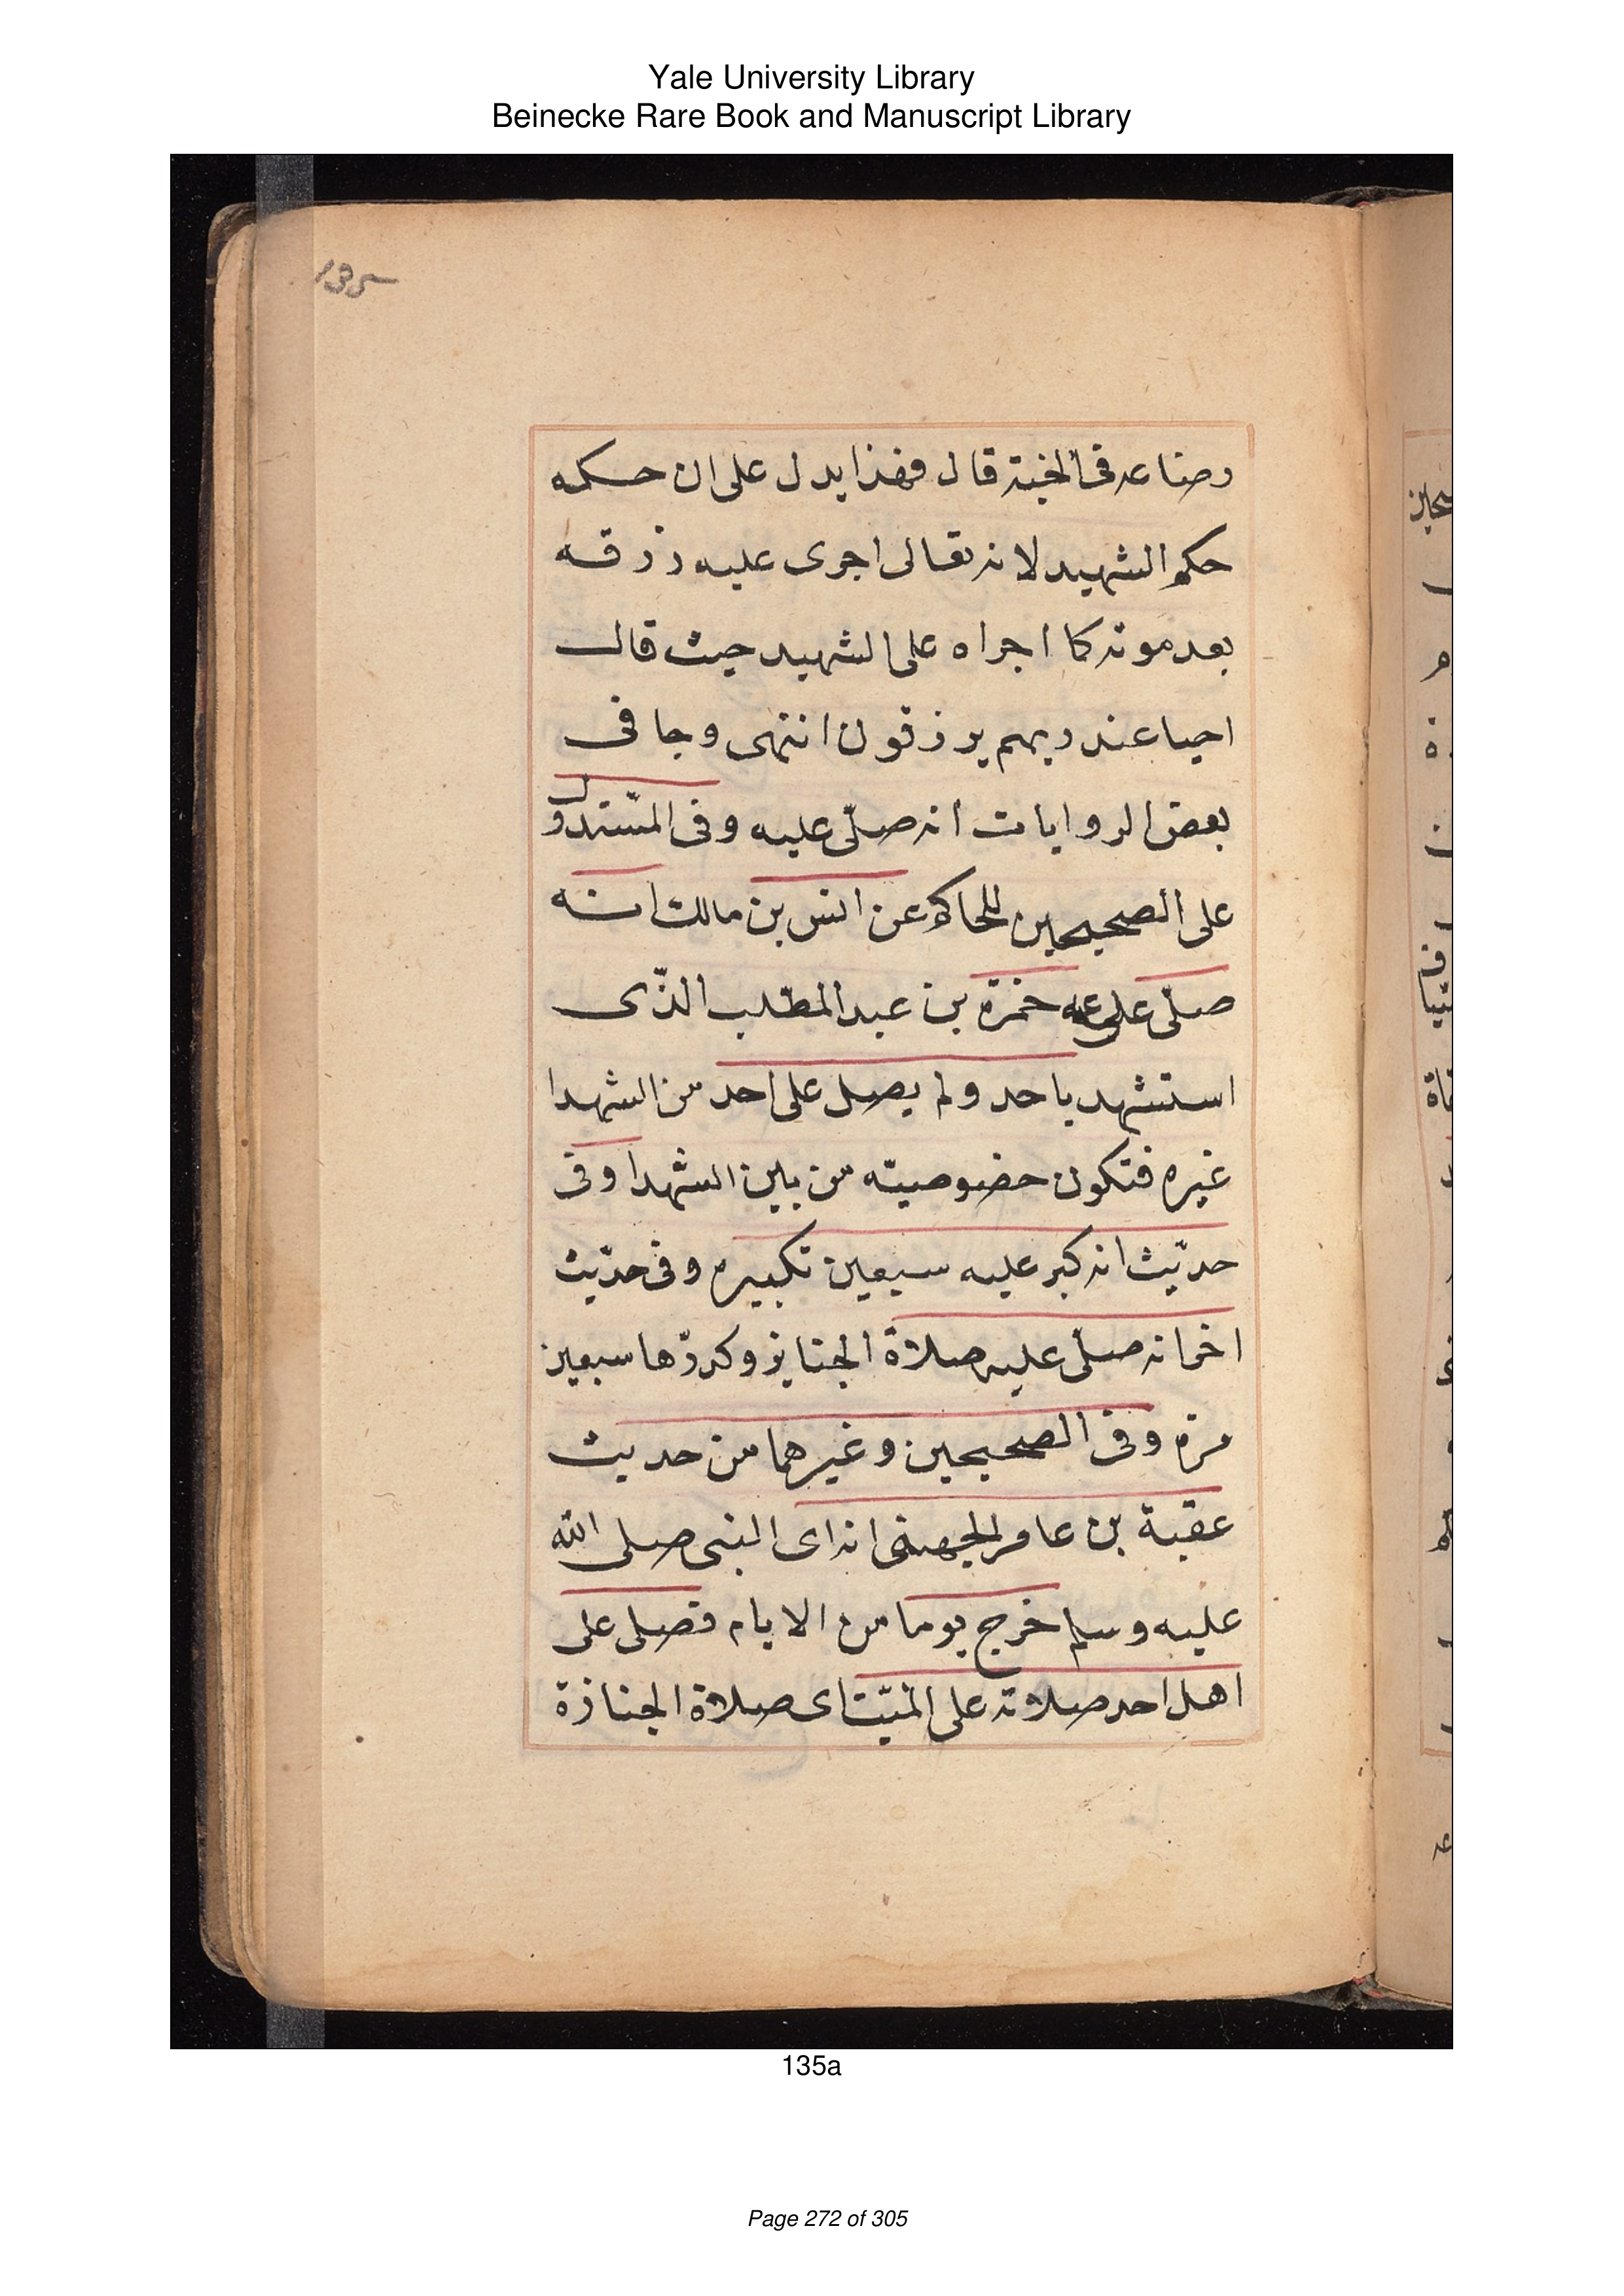 Yale University Library
Beinecke Rare Book and Manuscript Library
رضاعه فى الجنة قال فهذا يدل على ان حكمه
حكم الشهيد لانه تعالى اجرى عليه رزقه
بعد موته كما اجراه على الشهيد حيث قال
احيا عند ربهم يرزقون انتهى وجا فى
بعض الروايات انه صلّى عليه وفى المستدرك
على الصحيحين للحاكم عن انس بن مالك انه
صلّى على عمه حمزة بن عبد المطّلب الذّى
استشهد باحد ولم يصل على احد من الشهدا
غيره فتكون خصوصيّه من بين الشهدا وفى
حديث انه كبر عليه سبعين تكبيره وفى حديث
اخر انه صلّى عليه صلاة الجنايز وكررّها سبعين
مرّه وفى الصحيحين وغيرهما من حديث
عقبة بن عامر الجهنى انه اى النبى صلى الله
عليه وسلم خرج يوما من الايام فصلى على
اهل احد صلاته على الميّت اى صلاة الجنازة
135a
Page 272 of 305